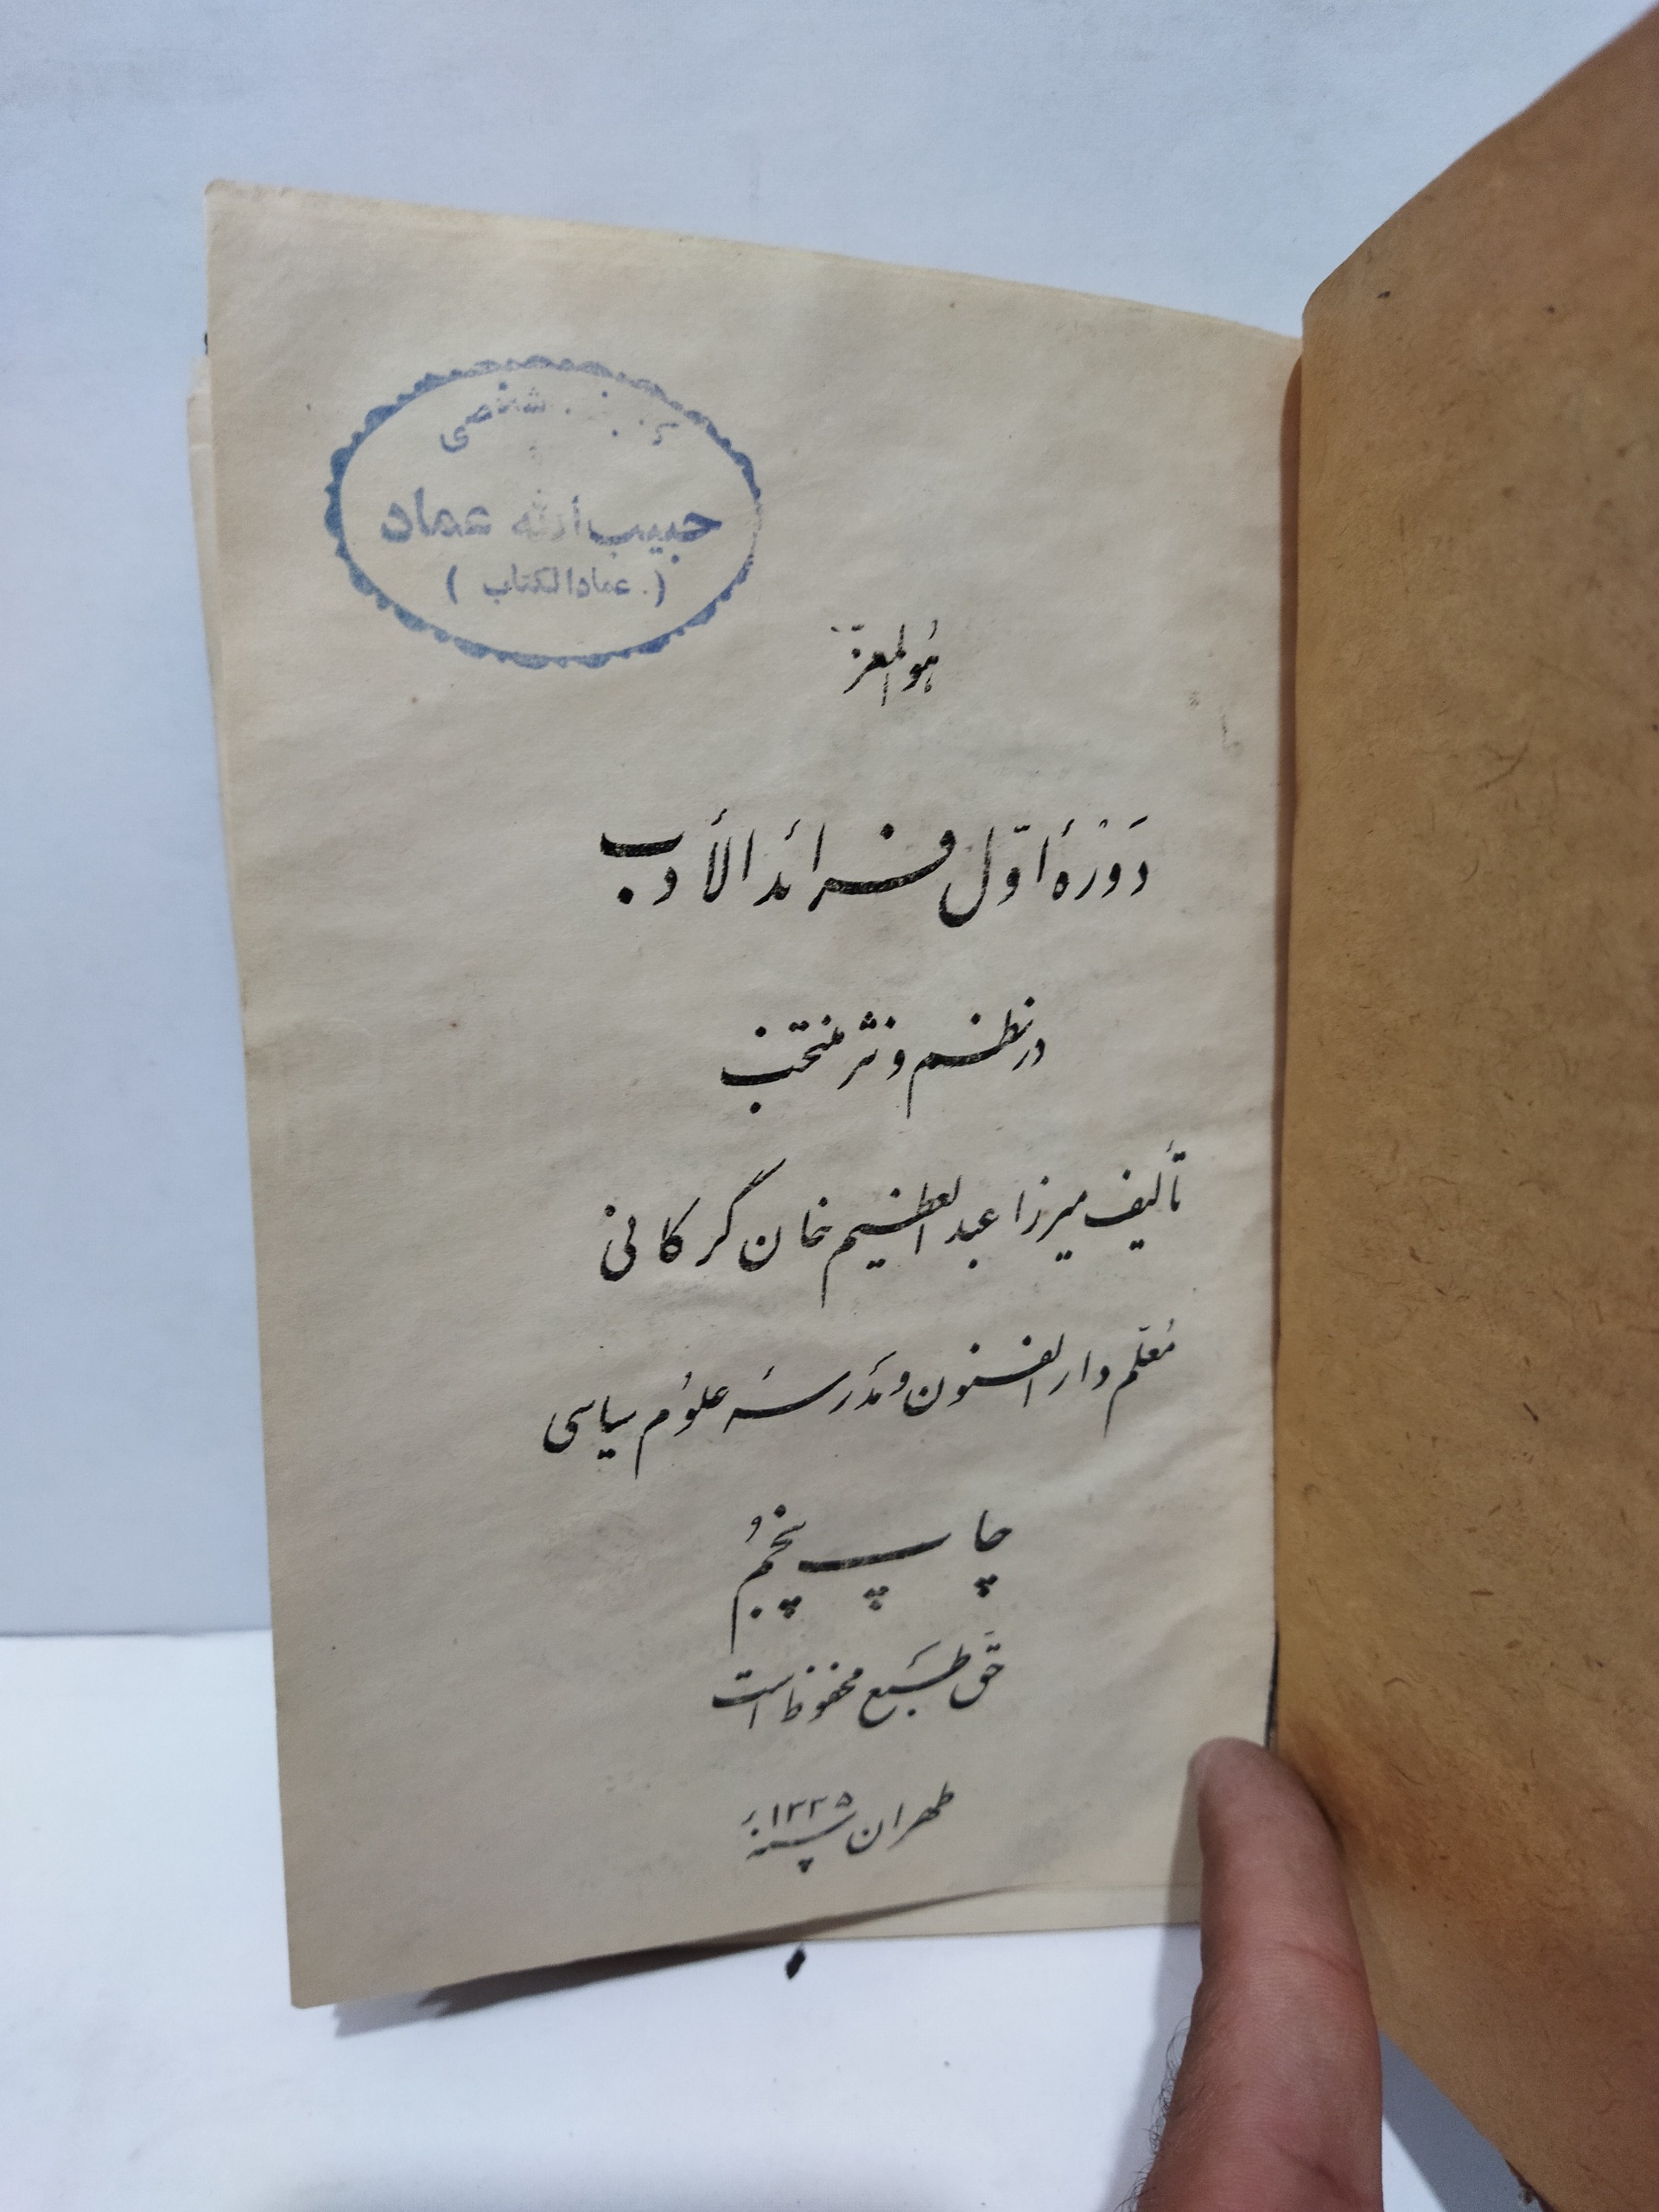 شخصی
حبیب الله عماد
( عمادالکتاب )
هُوالمعزّ
دَوْرهٔ اوّل فرائد الأدب
در نظم و نثر منتخب
تألیف میرزا عبدالعظیم خان گرکانی
مُعلّم دارالفنون و مَدرسهٔ علوُم سیاسی
چاپ پنجمُ
حقّ طَبع محفوظ است
طهران سنهٔ ۱۳۳۵